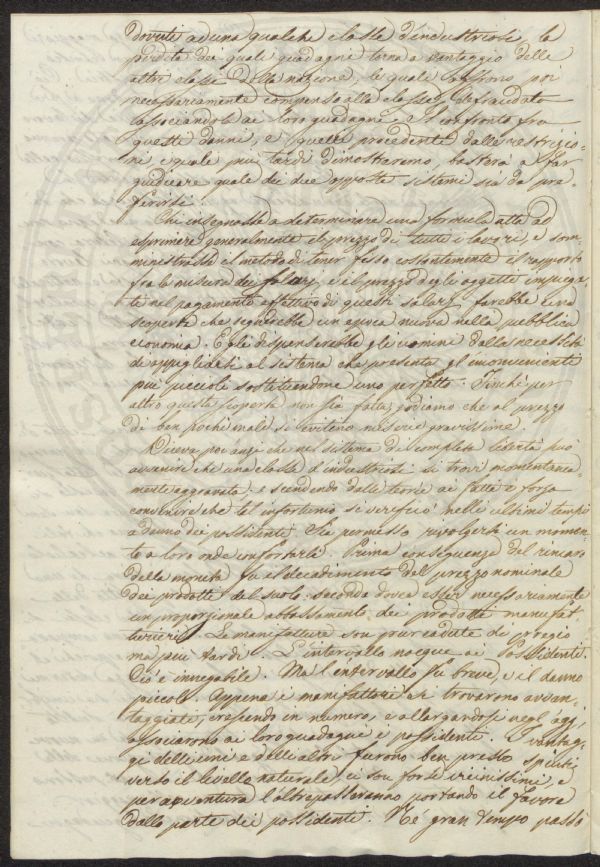 dovuti ad una qualche classe d'industriosi, la
perdita dei quali guadagni torna a vantaggio delle
altre classi della nazione, le quali possono poi
necessariamente compenso alla classe defraudata
associandola ai loro guadagni e il confronto fra
questi danni, e quelli procedenti dalle restrizio-
ni e quale più tardi dimostraremo basterà a far
giudicare quale dei due opposti sistemi sia da pre-
ferirsi.
Chi insegnasse a determinare una formula atta ad
esprimere generalmente il prezzo di tutti i lavori, e som-
ministrasse il metodo di tener fisso costantemente il rapporto
fra la misura dei salarj, e il prezzo degli oggetti impiega-
ti nel pagamento effettivo di questi salarj, farebbe una
scoperta che segnerebbe un epoca nuova nella pubblica
economia. Egli dispenserebbe gli uomini dalla necessità
di appigliarsi al sistema che presenta gl'inconvenienti
più piccoli sostituendone uno perfetto. Finchè per
altro questa scoperta non sia fatta, godiamo che al prezzo
di ben pochi mali si evitino miserie gravissime.
Diceva poc'anzi che nel sistema di completa libertà può
avvenire che una classe d'industriosi si trovi momentanea-
mente aggravata, e scendendo dalle teorie ai fatti è forza
convenire che tal infortunio si verificò nelli ultimi tempi
a danno dei possidenti. Sia permesso rivolgersi un momen-
to a loro onde confortarli. Prima conseguenza del rincaro
della moneta fu il decadimento del prezzo nominale
dei prodotti del suolo: seconda dovea esser necessariamente
un proporzionale abbassamento dei prodotti manufat-
turieri. Le manifatture son pur cadute di pregio
ma più tardi. L'intervallo nocque ai Possidenti.
Ciò è innegabile. Ma l'intervallo fu breve, e il danno
piccolo. Appena i manifattori si trovarono avvan-
taggiati, crescendo in numero, e allargandosi negli agj,
associarono ai loro guadagni i possidenti. I vantag-
gi delli uni e delli altri furono ben presto spinti
verso il livello naturale, ci son forse vicinissimi, e
per avventura l'oltrepasseranno portando il favore
dalla parte dei possidenti. Nè gran tempo passò